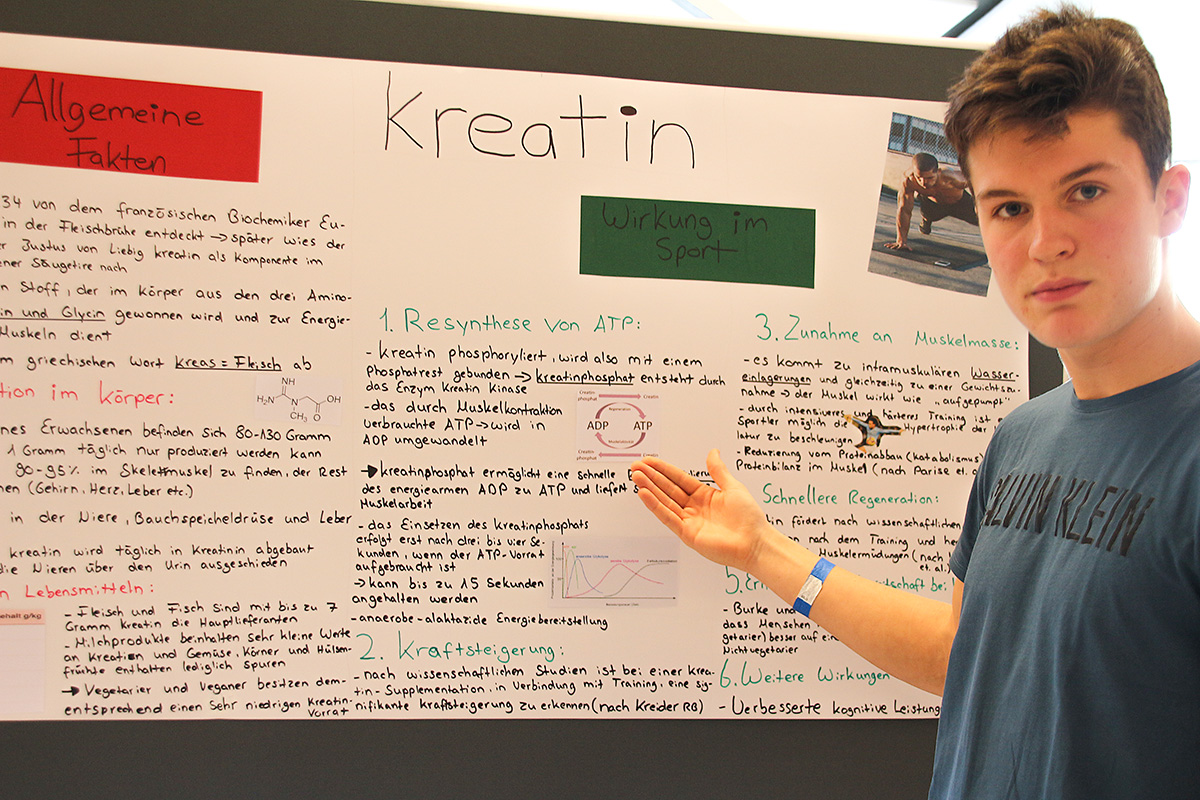 Kreatin
Allgemeine
Fakten
34 von dem französischen Biochemiker Eu-
in der Fleischbrühe entdeckt → später wies der
Justus von Liebig kreatin als Komponente im
Säugetire nach
Stoff, der im körper aus den drei Amino-
und Glycin gewonnen wird und zur Energie-
Muskeln dient
griechischen Wort kreas = Fleisch ab
im körper:
Erwachsenen befinden sich 80-130 Gramm
1 Gramm täglich nur produziert werden kann
90-95% im Skelettmuskel zu finden, der Rest
(Gehirn, Herz, Leber etc.)
in der Niere, Bauchspeicheldrüse und Leber
kreatin wird täglich in Kreatinin abgebaut
die Nieren über den Urin ausgeschieden
Lebensmitteln:
- Fleisch und Fisch sind mit bis zu 7
Gramm kreatin die Hauptlieferanten
- Milchprodukte beinhalten sehr kleine Werte
an Kreatin und Gemüse, Körner und Hülsen-
früchte enthalten lediglich Spuren
→ Vegetarier und Veganer besitzen dem-
entsprechend einen sehr niedrigen kreatin-
Vorrat
g/kg
NH
H₂N
N
CH₃
O
OH
Wirkung im
Sport
1. Resynthese von ATP:
- kreatin phosphoryliert, wird also mit einem
Phosphatrest gebunden → kreatinphosphat entsteht durch
das Enzym Kreatin Kinase
- das durch Muskelkontraktion
verbrauchte ATP → wird in
ADP umgewandelt
Creatin
phosphat
Creatin
ADP
ATP
Creatin
phosphat
Creatin
→ kreatinphosphat ermöglicht eine schnelle
des energiearmen ADP zu ATP und liefert
Muskelarbeit
- das Einsetzen des Kreatinphosphats
erfolgt erst nach drei bis vier Se-
kunden, wenn der ATP-Vorrat
aufgebraucht ist
→ kann bis zu 15 Sekunden
angehalten werden
- anaerobe-alaktazide Energiebereitstellung
2. Kraftsteigerung:
- nach wissenschaftlichen Studien ist bei einer Krea-
tin-Supplementation, in Verbindung mit Training, eine sig-
nifikante kraftsteigerung zu erkennen (nach Kreider RB)
3. Zunahme an Muskelmasse:
- es kommt zu intramuskulären Wasser-
einlagerungen und gleichzeitig zu einer Gewichtszu-
nahme → der Muskel wirkt wie „aufgepumpt"
- durch intensiveres und härteres Training ist
Sportler möglich die Hypertrophie der
latur zu beschleunigen
- Reduzierung vom Proteinabbau (katabolismus)
Proteinbilanz im Muskel (nach Parise et. a
Schnellere Regeneration:
fördert nach wissenschaftlichen
nach dem Training und
Muskelermüdungen (nach
et. al.)
5.
bei
- Burke und
dass Menschen
getarier) besser auf ein
Nichtvegetarier
6. Weitere Wirkungen
- Verbesserte kognitive Leistung
CALVIN KLEIN